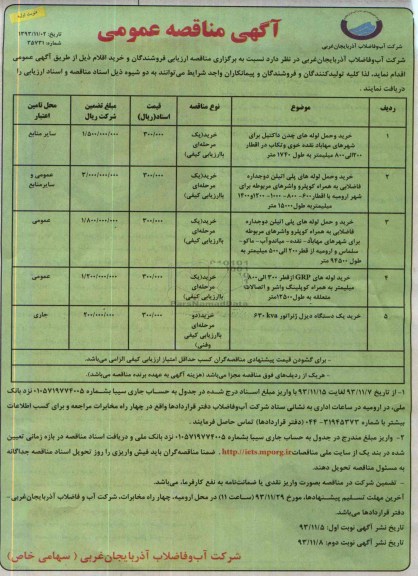 نوبت اول
آگهی مناقصه عمومی
تاریخ: ۱۳۹۳/۱۱/۰۲
شماره: ۳۵۷۳۱
شرکت آب‌وفاضلاب آذربایجان‌غربی
شرکت آب‌وفاضلاب آذربایجان‌غربی در نظر دارد نسبت به برگزاری مناقصه ارزیابی فروشندگان و خرید اقلام ذیل از طریق آگهی عمومی
اقدام نماید، لذا کلیه تولیدکنندگان و فروشندگان و پیمانکاران واجد شرایط می‌توانند به دو شیوه ذیل اسناد مناقصه و اسناد ارزیابی را
دریافت نمایند .
ردیف موضوع نوع مناقصه قیمت اسناد(ریال) مبلغ تضمین شرکت ریال محل تامین اعتبار
۱ خرید وحمل لوله های چدن داکتیل برای شهرهای مهاباد نقده خوی وتکاب در اقطار ۲۰۰الی۸۰۰ میلیمتر به طول ۱۷۴۰ متر خرید(یک مرحله‌ای باارزیابی کیفی) ۳۰۰/۰۰۰ ۱/۵۰۰/۰۰۰/۰۰۰ سایر منابع
۲ خرید وحمل لوله های پلی اتیلن دوجداره فاضلابی به همراه کوپلرو واشرهای مربوطه برای شهر ارومیه با اقطار۶۰۰- ۸۰۰- ۱۰۰۰- ۱۲۰۰و۱۴۰۰ میلیمتربه طول۱۵۰۰۰ متر خرید(یک مرحله‌ای باارزیابی کیفی) ۳۰۰/۰۰۰ ۳/۰۰۰/۰۰۰/۰۰۰ عمومی و سایرمنابع
۳ خرید و حمل لوله های پلی اتیلن دوجداره فاضلابی به همراه کوپلرو واشرهای مربوطه برای شهرهای مهاباد- نقده- میاندوآب- ماکو- سلماس و ارومیه از قطر۲۰۰ الی ۵۰۰ میلیمتر به طول ۹۴۵۰۰ متر خرید(یک مرحله‌ای باارزیابی کیفی) ۳۰۰/۰۰۰ ۱/۸۰۰/۰۰۰/۰۰۰ عمومی
۴ خرید لوله های GRP ازقطر ۳۰۰ الی۸۰۰ میلیمتر به همراه کوپلینگ واشر و اتصالات متعلقه به طول۱۲۵۰۰متر خرید(یک مرحله‌ای باارزیابی کیفی) ۳۰۰/۰۰۰ ۱/۲۰۰/۰۰۰/۰۰۰ عمومی
۵ خرید یک دستگاه دیزل ژنراتور ۶۳۰ kva خرید(دو مرحله‌ای باارزیابی وفنی) ۳۰۰/۰۰۰ ۲۰۰/۰۰۰/۰۰۰ جاری
- برای گشودن قیمت پیشنهادی مناقصه‌گران کسب حداقل امتیاز ارزیابی کیفی الزامی می‌باشد.
- هریک از ردیف‌های فوق مناقصه مجزا می‌باشد (هزینه آگهی به عهده برنده مناقصه می‌باشد).
۱- از تاریخ ۹۳/۱۱/۷ لغایت ۹۳/۱۱/۱۵ با واریز مبلغ اسناد درج شده در جدول به حساب جاری سیبا بشماره ۰۱۰۵۷۱۹۷۷۴۰۰۵ نزد بانک
ملی، در ارومیه در ساعات اداری به نشانی ستاد شرکت آب‌وفاضلاب دفتر قراردادها واقع در چهار راه مخابرات مراجعه و برای کسب اطلاعات
بیشتر با شماره ۳۱۹۴۵۳۷۳-۰۴۴ (دفتر قراردادها) تماس حاصل فرمایند .
۲- با واریز مبلغ مندرج در جدول به حساب جاری سیبا بشماره ۰۱۰۵۷۱۹۷۷۴۰۰۵ نزد بانک ملی و دریافت اسناد مناقصه در بازه زمانی تعیین
شده در بند یک از سایت ملی مناقصات http://iets.mporg.ir . ضمنا مناقصه‌گران باید فیش واریزی را روز تحویل اسناد مناقصه جداگانه
به مسئول مناقصه تحویل دهند.
- تضمین شرکت در مناقصه بصورت واریز نقدی یا ضمانت‌نامه به نفع کارفرما، می‌باشد.
آخرین مهلت تسلیم پیشنهادها، مورخ ۹۳/۱۱/۲۹ (ساعت ۱۱) در محل ارومیه، چهار راه مخابرات، شرکت آب و فاضلاب آذربایجان‌غربی-
دفتر قراردادها می‌باشد.
تاریخ نشر آگهی نوبت اول: ۹۳/۱۱/۵
تاریخ نشر آگهی نوبت دوم: ۹۳/۱۱/۸
شرکت آب‌وفاضلاب آذربایجان‌غربی ( سهامی خاص)